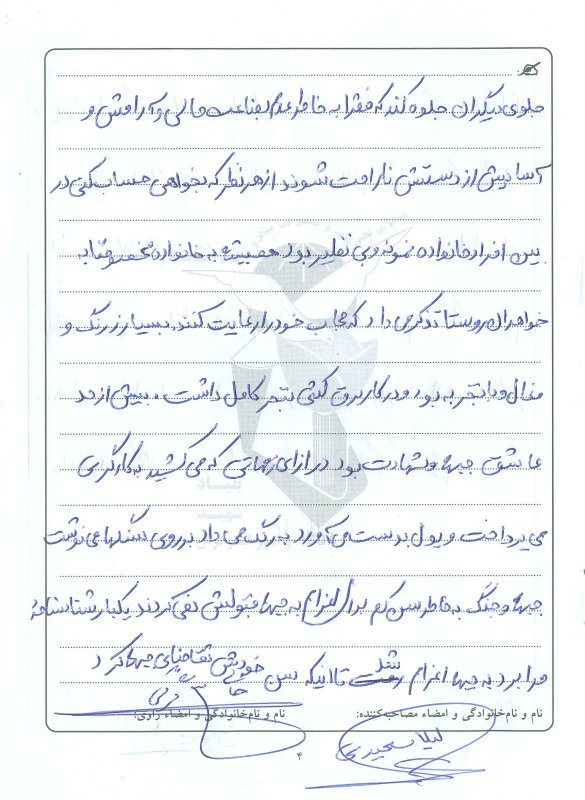 جلوی دیگران جلوه کند که فقرا به خاطر عدم بضاعت مالی و آرامش و
آسایش از دستش ناراحت شوند از هر نظر که بخواهی حساب کنی در
بین افراد خانواده نمونه و بی نظیر بود همیشه به خانواده مخصوصا به
خواهران روستا تذکر می داد که حجاب خود را رعایت کنند. بسیار زرنگ و
فعال و با تجربه بود و در کار برق کشی تبحر کامل داشت. بیش از حد
عاشق جبهه و شهادت بود در ازای زحماتی که می کشید به کارگری
می پرداخت و پول بدست می آورد به رنگ می داد بر روی سنگها می نوشت
جبهه و جنگ به خاطر سن کم برای اعزام به جبهه قبولش نمی کردند یکبار شناسنامه
مرا برد به جبهه اعزام شد تا اینکه سن خودش تقاضای جبهه کرد
نام و نام‌خانوادگی و امضاء مصاحبه‌کننده:
نام و نام‌خانوادگی و امضاء راوی:
لیلا سعیدی
۴